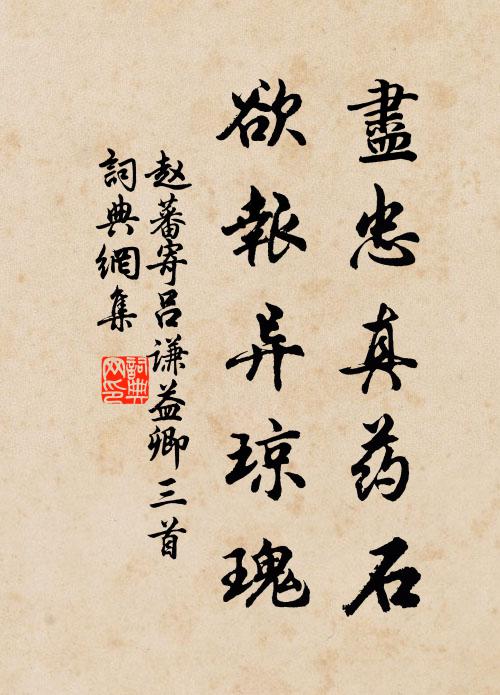 盡忠真药石
欲報异琼瑰
赵蕃寄吕谦益卿三首
詞典網集
詞典网印